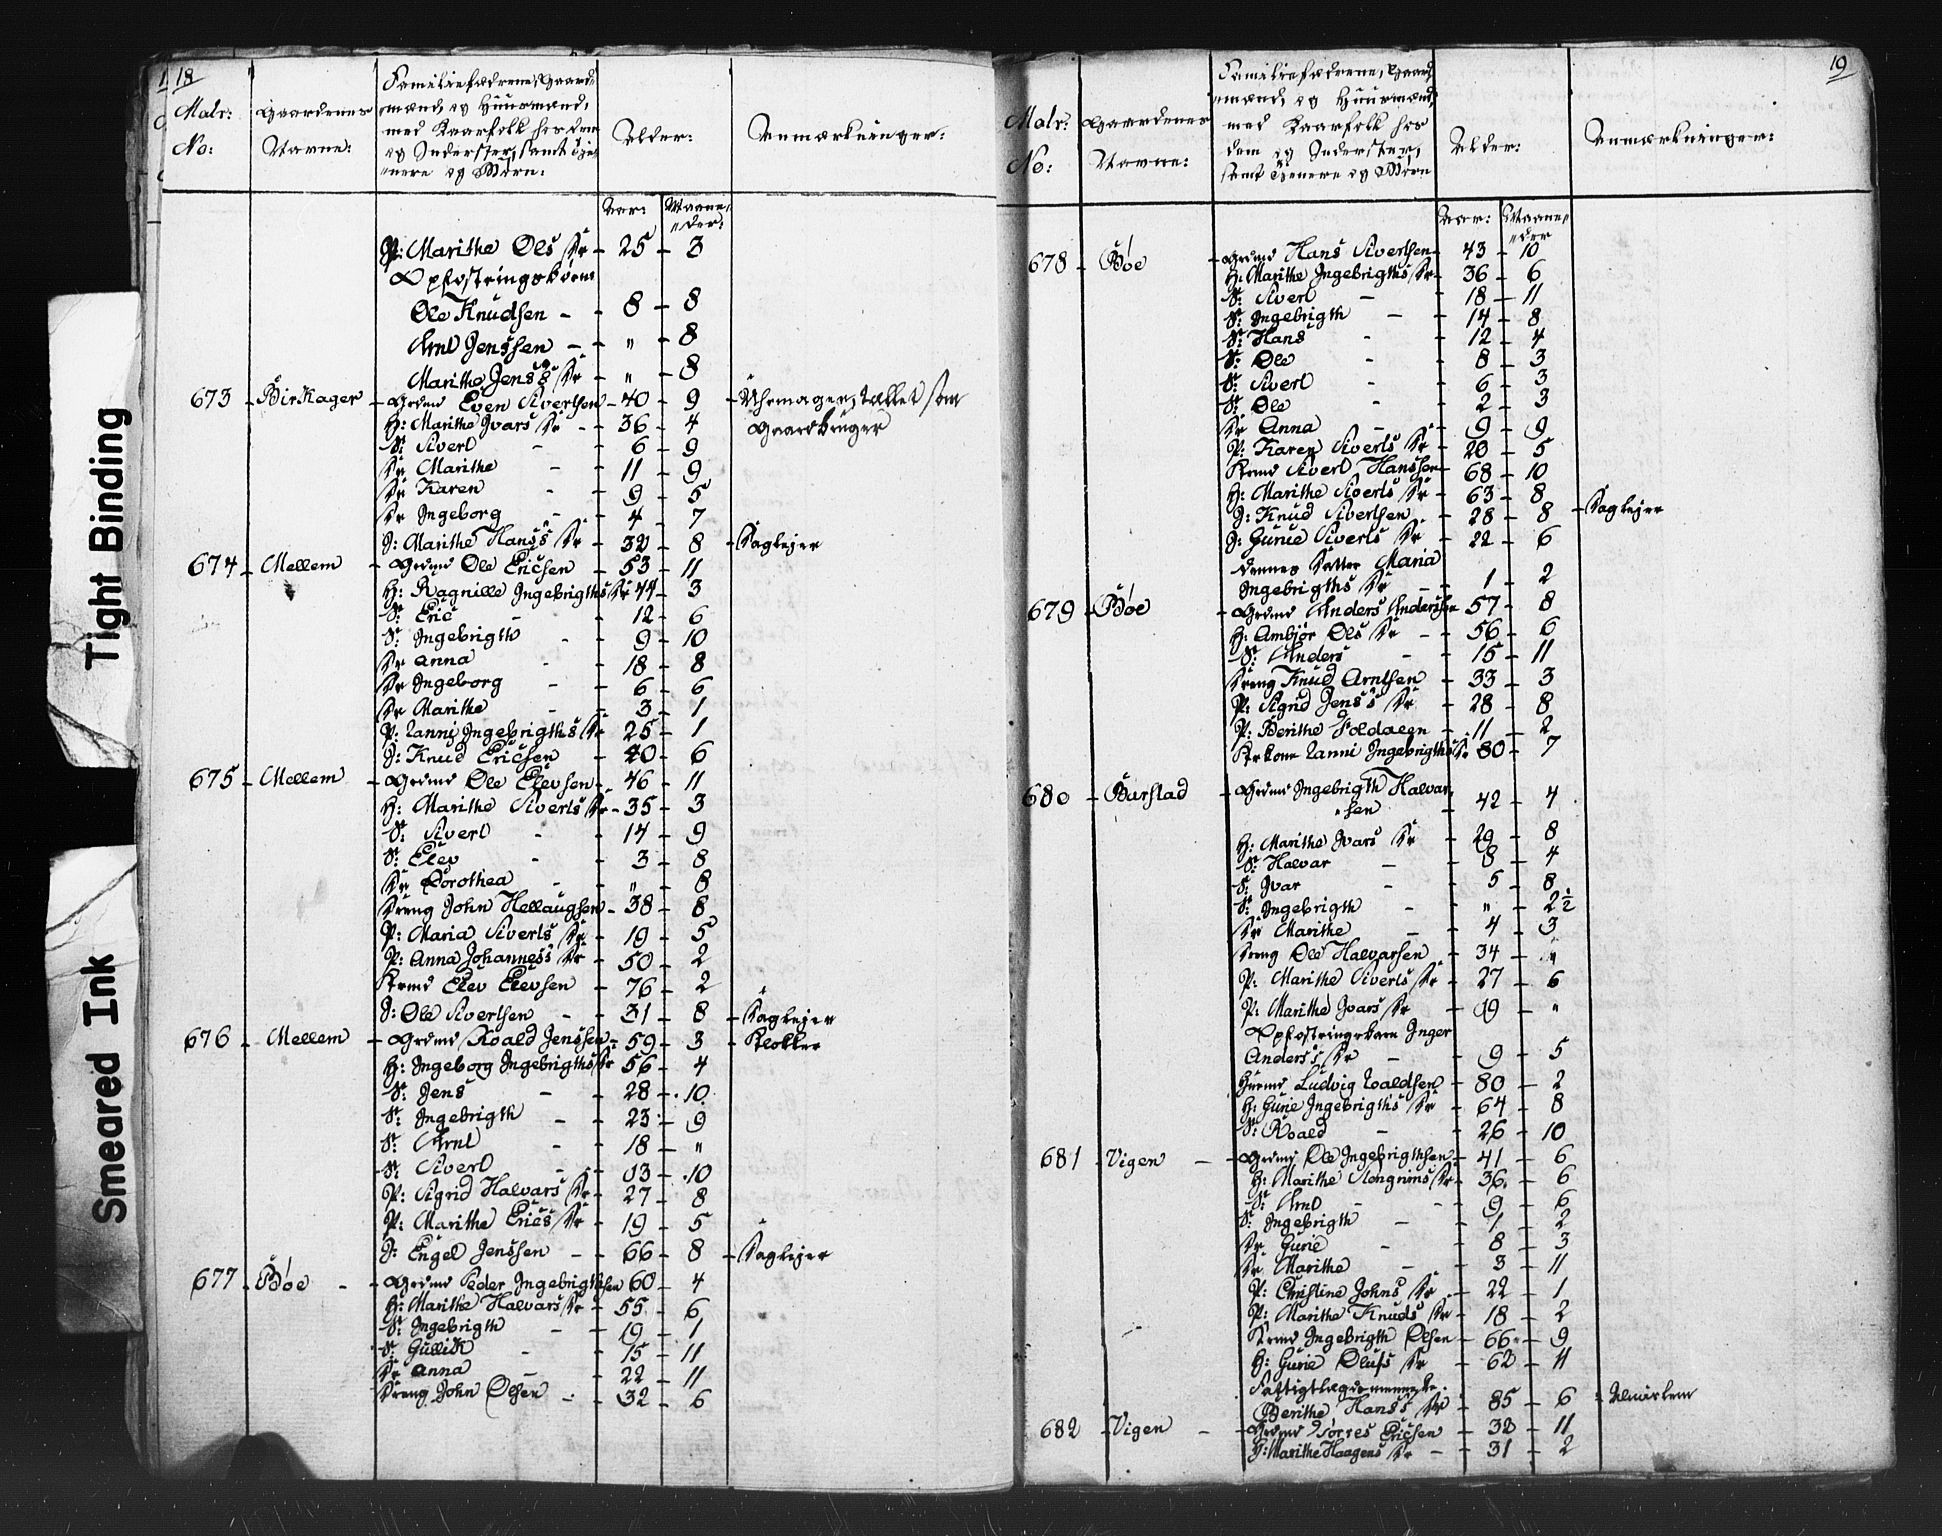 Tight Binding
Smeared Ink
18
Matr: No:
Gaardenes Navne:
Familiefædrene, Gaard-
mænd, og Huusmænd,
med Kaarfolk hos dem
og Inderster, samt Tje-
nere og Börn:
Alder:
Anmærkninger:
Aar: Maane-
der:
P: Marithe Ols Dr 25 3
Opfostringsbörn
Ole Knudsen 8 8
Arnt Jenssen " 8
Marithe Jens's Dr " 8
673 Birkager Grdmd Even Sivertsen 40 9 Uhrmager, tællet som
H: Marithe Ivars Dr 36 4 Gaardbruger
S: Sivert 6 9
Dr Marithe 11 9
Dr Karen 9 5
Dr Ingeborg 4 7
I: Marithe Hans's Dr 32 8 Daglejer
674 Mellem Grdmd Ole Ericsen 53 11
H: Ragnille Ingebrigths Dr 44 3
S: Eric 12 6
S: Ingebrigth 9 10
Dr Anna 18 8
Dr Ingeborg 6 6
Dr Marithe 3 1
P: Ranni Ingebrigths Dr 25 1
I: Knud Ericsen 40 6
675 Mellem Grdmd Ole Elevsen 46 11
H: Marithe Siverts Dr 35 3
S: Sivert 14 9
S: Elev 3 8
Dr Dorothea " 8
Dreng John Hellaugsen 38 8
P: Maria Siverts Dr 19 5
P: Anna Johannes's Dr 50 2
Krmd Elev Elevsen 76 2
I: Ole Sivertsen 31 8 Daglejer
676 Mellem Grdmd Roald Jenssen 59 3 Klokker
H: Ingeborg Ingebrigths Dr 56 4
S: Jens 28 10
S: Ingebrigth 23 9
S: Arnt 18 "
S: Sivert 13 10
P: Sigrid Halvars Dr 27 8
P: Marithe Erics Dr 19 5
I: Engel Jenssen 66 8 Daglejer
677 Böe Grdmd Peder Ingebrigthsen 60 4
H: Marithe Halvars Dr 55 6
S: Ingebrigth 19 1
S: Gullich 15 11
Dr Anna 22 11
Dreng John Olsen 32 6
19
Matr: No:
Gaardenes Navne:
Familiefædrene, Gaard-
mænd, og Huusmænd,
med Kaarfolk hos
dem og Inderster,
samt Tjenere og Börn
Alder:
Anmærkninger:
Aar: Maane-
der
678 Böe Grdmd Hans Sivertsen 43 10
H: Marithe Ingebrigths Dr 36 6
S: Sivert 18 11
S: Ingebrigth 14 8
S: Hans 12 4
S: Ole 8 3
S: Sivert 6 3
S: Ole 2 3
Dr Anna 9 9
P: Karen Siverts Dr 20 5
Krmd Sivert Hanssen 68 10
H: Marithe Siverts Dr 63 8
I: Knud Sivertsen 28 8 Daglejer
I: Gurie Siverts Dr 22 6
dennes Datter Maria
Ingebrigths Dr 1 2
679 Böe Grdmd Anders Andersen 57 8
H: Ambjör Ols Dr 56 6
S: Anders 15 11
Dreng Knud Arntsen 33 3
P: Sigrid Jens's Dr 28 8
P: Berithe Foldalen 11 2
Krkone Ranni Ingebrigths Dr 80 7
680 Burstad Grdmd Ingebrigth Halvar-
sen 42 4
H: Marithe Ivars Dr 29 8
S: Halvar 8 4
S: Ivar 5 8
S: Ingebrigth " 2½
Dr Marithe 4 3
Dreng Ole Halvarsen 34 "
P: Marithe Siverts Dr 27 6
P: Marithe Ivars Dr 19 "
Opfostringsbarn Inger
Anders's Dr 9 5
Husmd Ludvig Roaldsen 80 2
H: Gurie Ingebrigths Dr 64 8
S: Roald 26 10
681 Vigen Grdmd Ole Ingebrigthsen 41 6
H: Marithe Stengrims Dr 36 6
S: Arnt 9 6
S: Ingebrigth 1 2
Dr Gurie 8 3
Dr Marithe 3 11
P: Christine Johns Dr 22 1
P: Marithe Knuds Dr 18 2
Krmd Ingebrigth Olsen 66 9
H: Gurie Olufs Dr 62 11
Fattiglægdsmenneske
Berithe Hans's Dr 85 6 Almissem
682 Vigen Grdmd Törres Ericsen 32 11
H: Marithe Haagens Dr 31 2